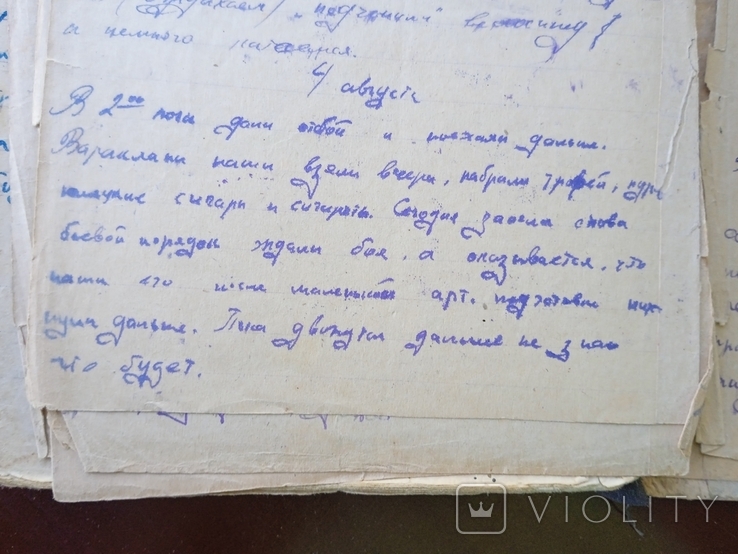 а немного
4 августа
В 2⁰⁰ ночи дали отбой и поехали дальше.
Вараклани наши взяли вчера, набрали трофей,
сигары и сигареты. Сегодня заняла снова
боевой порядок ждали боя, а оказывается, что
наши его после маленькой арт. подготовки
дальше. Пока движутся дальше не знаю
что будет.
VIOLITY